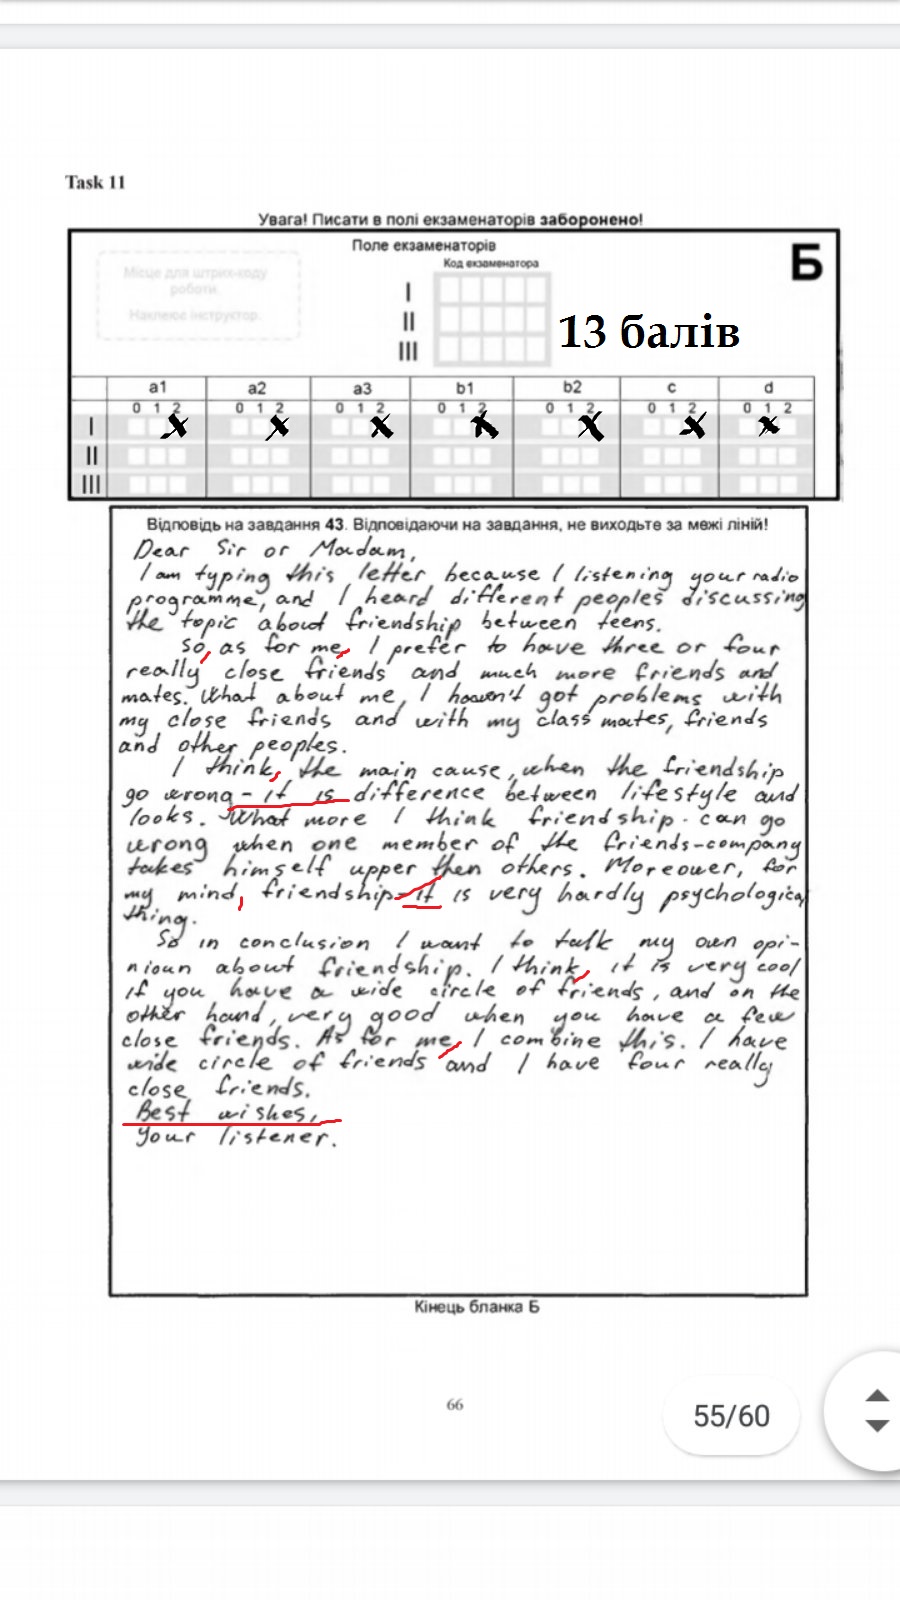 Task 11
Увага! Писати в полі екзаменаторів заборонено!
Поле екзаменаторів
Б
Місце для штрих-коду
роботи.
Наклеює інструктор.
Код екзаменатора
I
II
III
13 балів
a1 a2 a3 b1 b2 c d
0 1 2 0 1 2 0 1 2 0 1 2 0 1 2 0 1 2 0 1 2
I
II
III
Відповідь на завдання 43. Відповідаючи на завдання, не виходьте за межі ліній!
Dear Sir or Madam,
I am typing this letter, because I listening your radio
programme, and I heard different peoples discussing
the topic about friendship between teens.
So, as for me, I prefer to have three or four
really close friends and much more friends and
mates. What about me, I haven't got problems with
my close friends and with my classmates, friends
and other peoples.
I think, the main cause, when the friendship
go wrong - it is difference between lifestyle and
looks. What more I think friendship can go
wrong when one member of the friends-company
takes himself upper then others. Moreover, for
my mind, friendship - it is very hardly psychological
thing.
So in conclusion I want to talk my own opi-
nioun about friendship. I think, it is very cool
if you have a wide circle of friends, and on the
other hand, very good when you have a few
close friends. As for me, I combine this. I have
wide circle of friends and I have four really
close friends.
Best wishes,
Your listener.
Кінець бланка Б
66
55/60